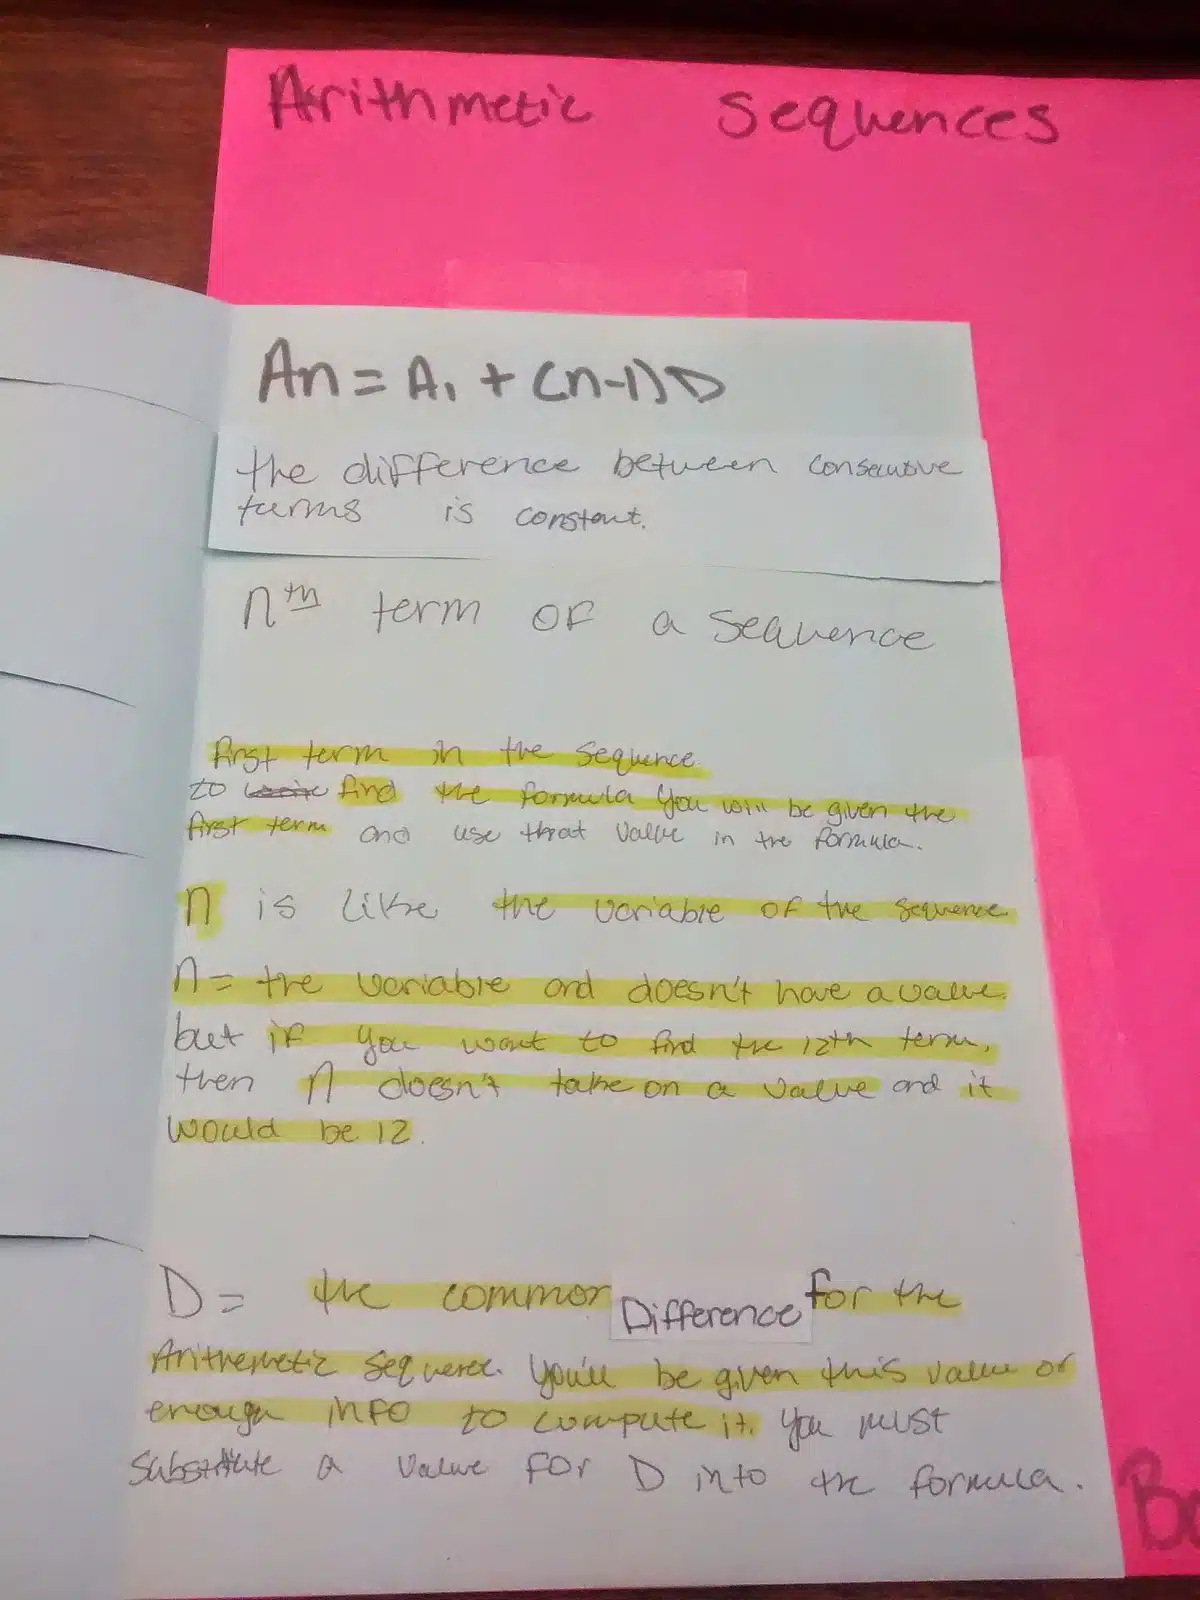 Arithmetic Sequences
An = A1 + (n-1)D
the difference between consecutive
terms is constant.
nth term of a sequence
first term in the sequence
to find the formula you will be given the
first term and use that value in the formula.
n is like the variable of the sequence
n = the variable and doesn't have a value.
but if you want to find the 12th term,
then n doesn't take on a value and it
would be 12.
D = the common Difference for the
Arithemetic sequence. You'll be given this value or
enough info to compute it. You must
substitute a value for D into the formula.